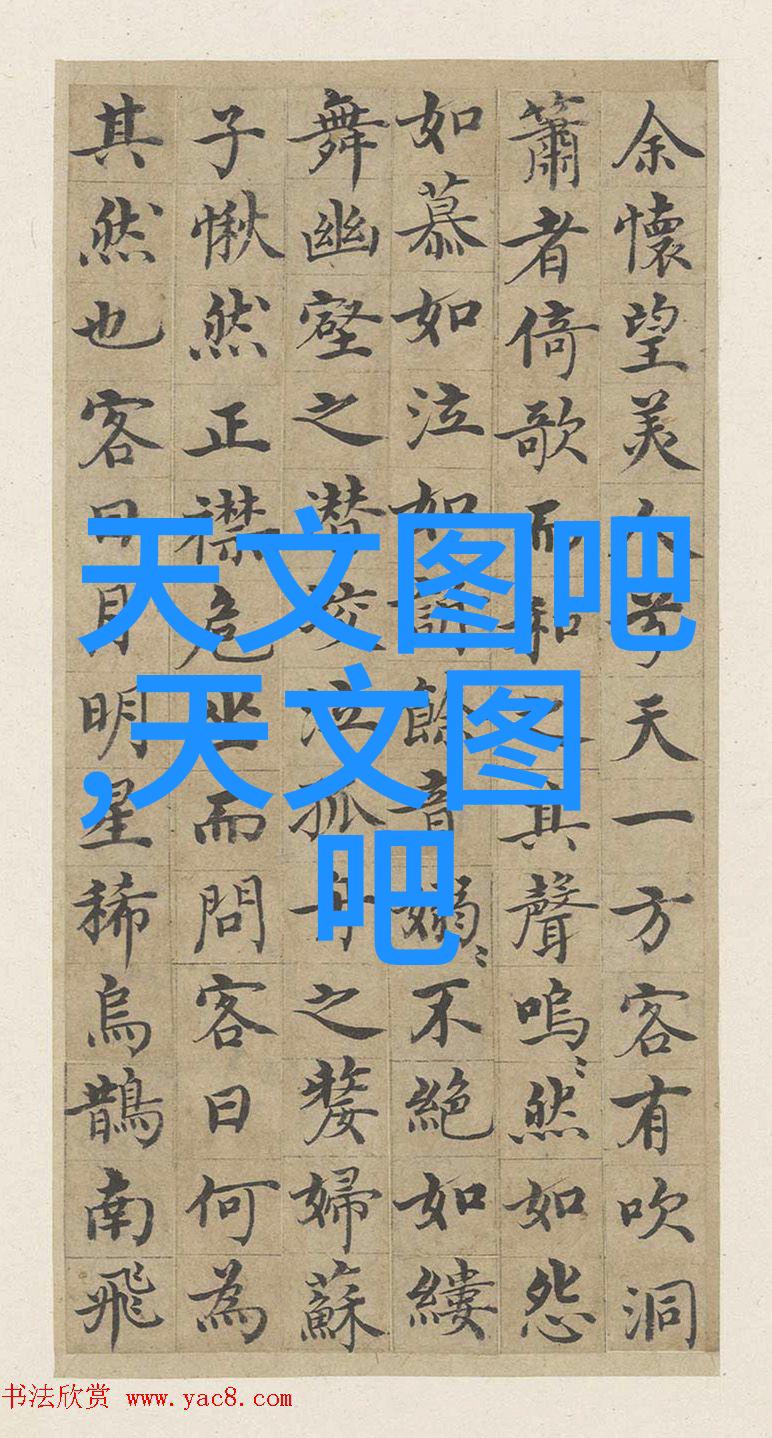 余懷望美人兮天一方客有吹洞
簫者倚歌而和之其聲嗚〻然如怨
如慕如泣如訴餘音嫋〻不絕如縷
舞幽壑之潛蛟泣孤舟之嫠婦蘇
子愀然正襟危坐而問客曰何為
其然也客曰月明星稀烏鵲南飛
天文图吧
,天文图
吧
书法欣赏 www.yac8.com